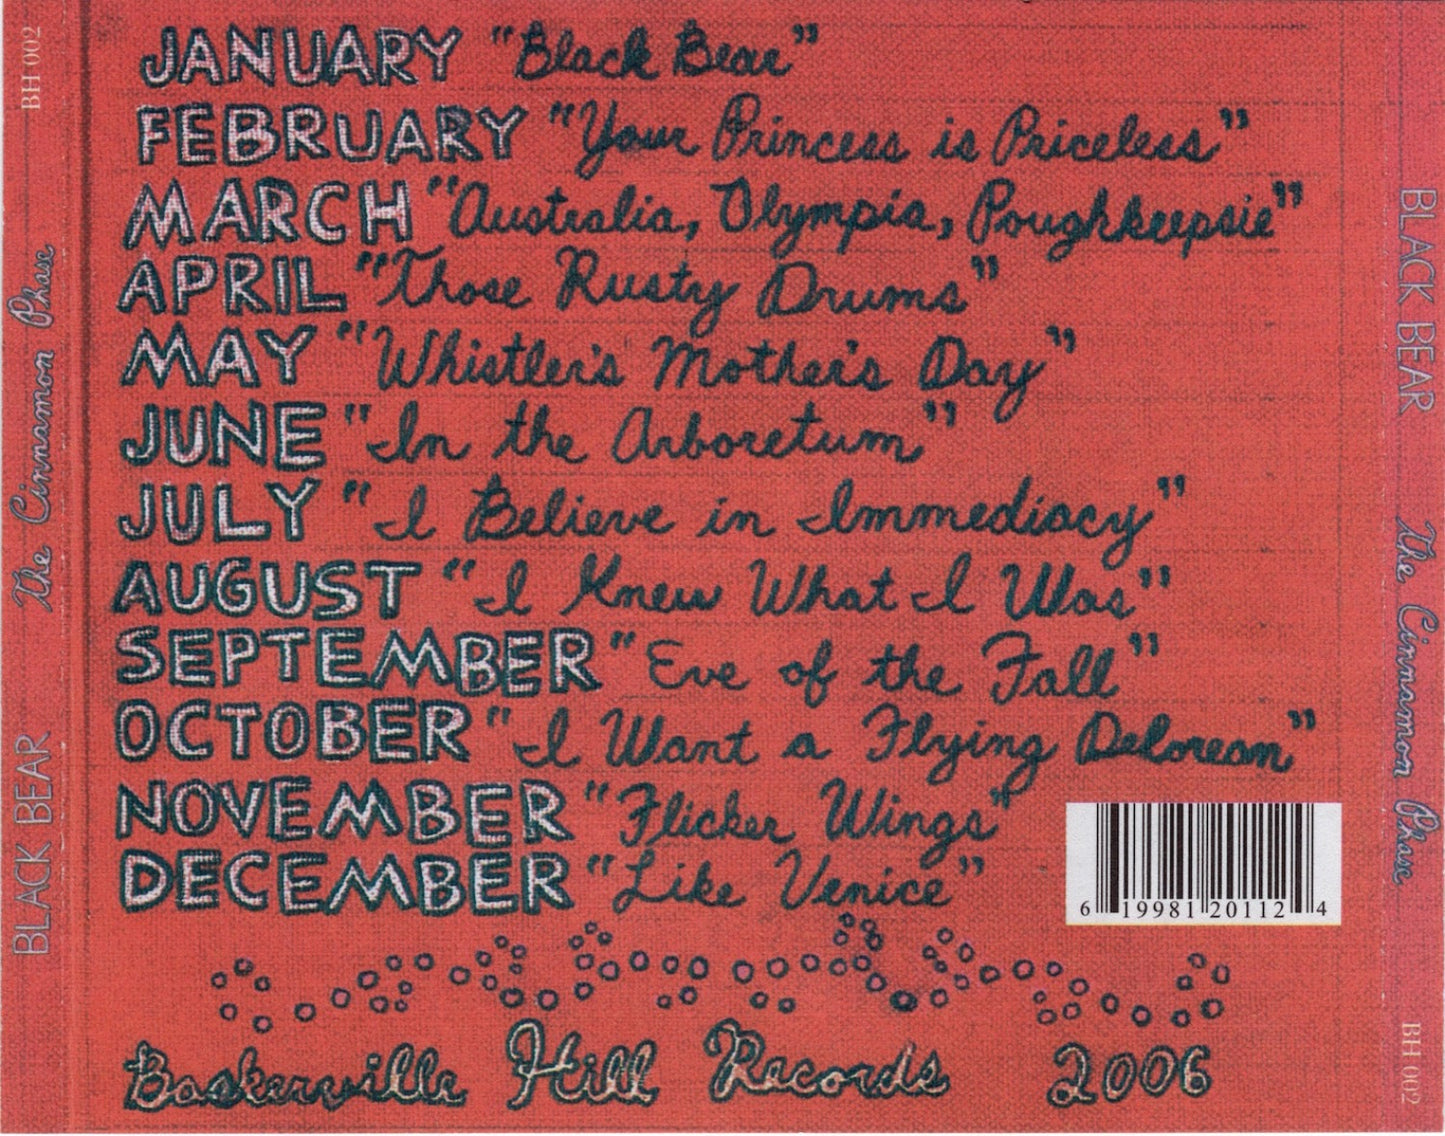 JANUARY "Black Bear"
FEBRUARY "Your Princess is Priceless"
MARCH "Australia, Olympia, Poughkeepsie"
APRIL "Those Rusty Drums"
MAY "Whistler's Mother's Day"
JUNE "In the Arboretum"
JULY "I Believe in Immediacy"
AUGUST "I Knew What I Was"
SEPTEMBER "Eve of the Fall"
OCTOBER "I Want a Flying Delorean"
NOVEMBER "Flicker Wings"
DECEMBER "Like Venice"
6 19981 20112 4
Baskerville Hill Records 2006
BLACK BEAR The Cinnamon Phase BH 002
BLACK BEAR The Cinnamon Phase BH 002